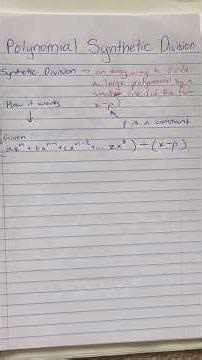 Polynomial Synthetic Division
Synthetic Division → an easy way to divide
a large polynomial by a
smaller one (of the form
x-p)
How it works
p is a constant
Given:
(ax^n + bx^{n-1} + cx^{n-2} + ... zx^0) ÷ (x-p)